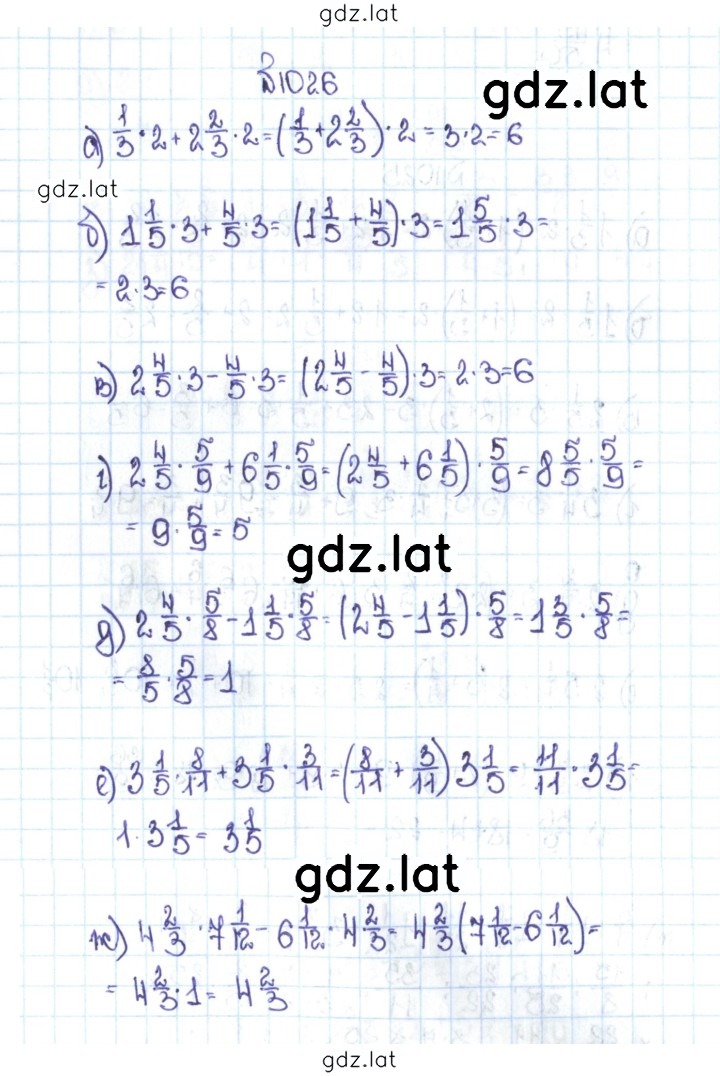 gdz.lat
№1026
gdz.lat
а) 1/3 · 2 + 2 2/3 · 2 = (1/3 + 2 2/3) · 2 = 3 · 2 = 6
gdz.lat
б) 1 1/5 · 3 + 4/5 · 3 = (1 1/5 + 4/5) · 3 = 1 5/5 · 3 =
= 2 · 3 = 6
в) 2 4/5 · 3 - 4/5 · 3 = (2 4/5 - 4/5) · 3 = 2 · 3 = 6
г) 2 4/5 · 5/9 + 6 1/5 · 5/9 = (2 4/5 + 6 1/5) · 5/9 = 8 5/5 · 5/9 =
= 9 · 5/9 = 5
gdz.lat
д) 2 4/5 · 5/8 - 1 1/5 · 5/8 = (2 4/5 - 1 1/5) · 5/8 = 1 3/5 · 5/8 =
= 8/5 · 5/8 = 1
е) 3 1/5 · 8/11 + 3 1/5 · 3/11 = (8/11 + 3/11) 3 1/5 = 11/11 · 3 1/5 =
1 · 3 1/5 = 3 1/5
gdz.lat
ж) 4 2/3 · 7 1/12 - 6 1/12 · 4 2/3 = 4 2/3 (7 1/12 - 6 1/12) =
= 4 2/3 · 1 = 4 2/3
gdz.lat